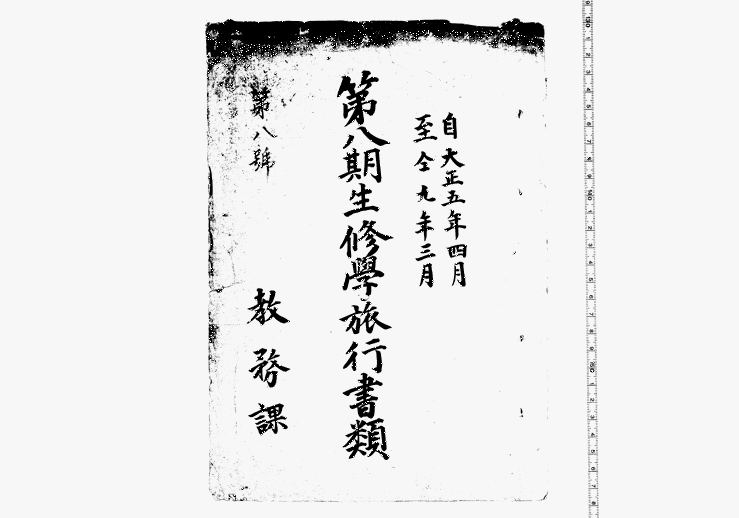 自大正五年四月
至仝九年三月
第八期生修學旅行書類
第八號
教務課